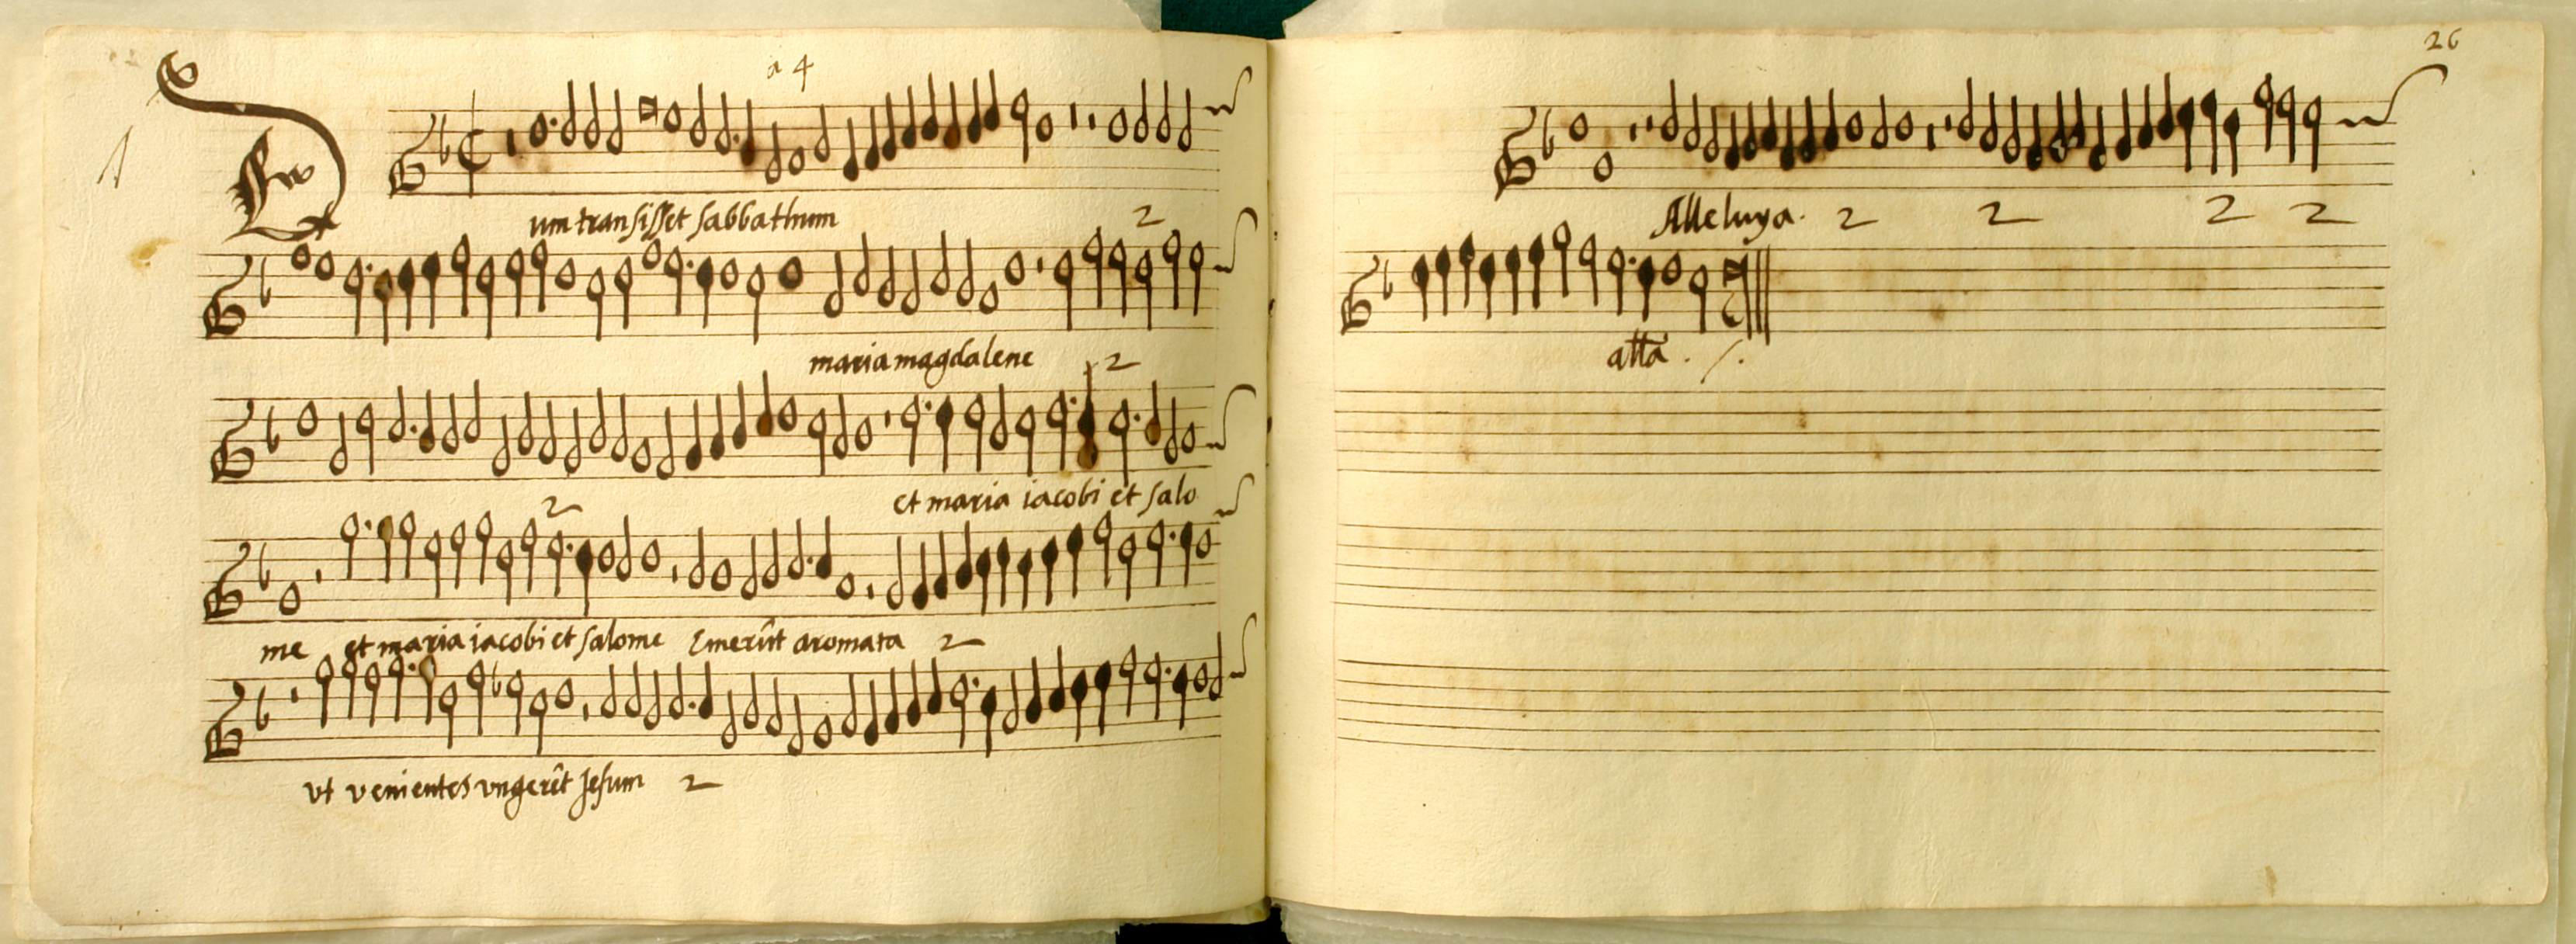 a 4
um transisset sabbathum 2
maria magdalene 2
et maria iacobi et salo
2
me et maria iacobi et salome Emerūt aromata 2
vt venientes vngerēt Jesum 2
26
Alleluya. 2 2 2 2
alla.